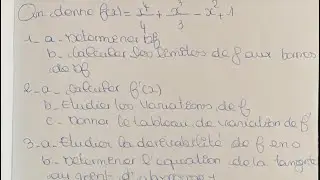 On donne f(x) = x⁴/4 + x³/3 - x² + 1
1 - a - Determiner Df
b - Calculer les limites de f aux bornes
de Df
2 - a - Calculer f'(x)
b - Etudier les variations de f
c - Donner le tableau de variation de f
3 - a - Etudier la derivabilité de f en 0
b - Determiner l'equation de la tangente
au point d'abscisse 1